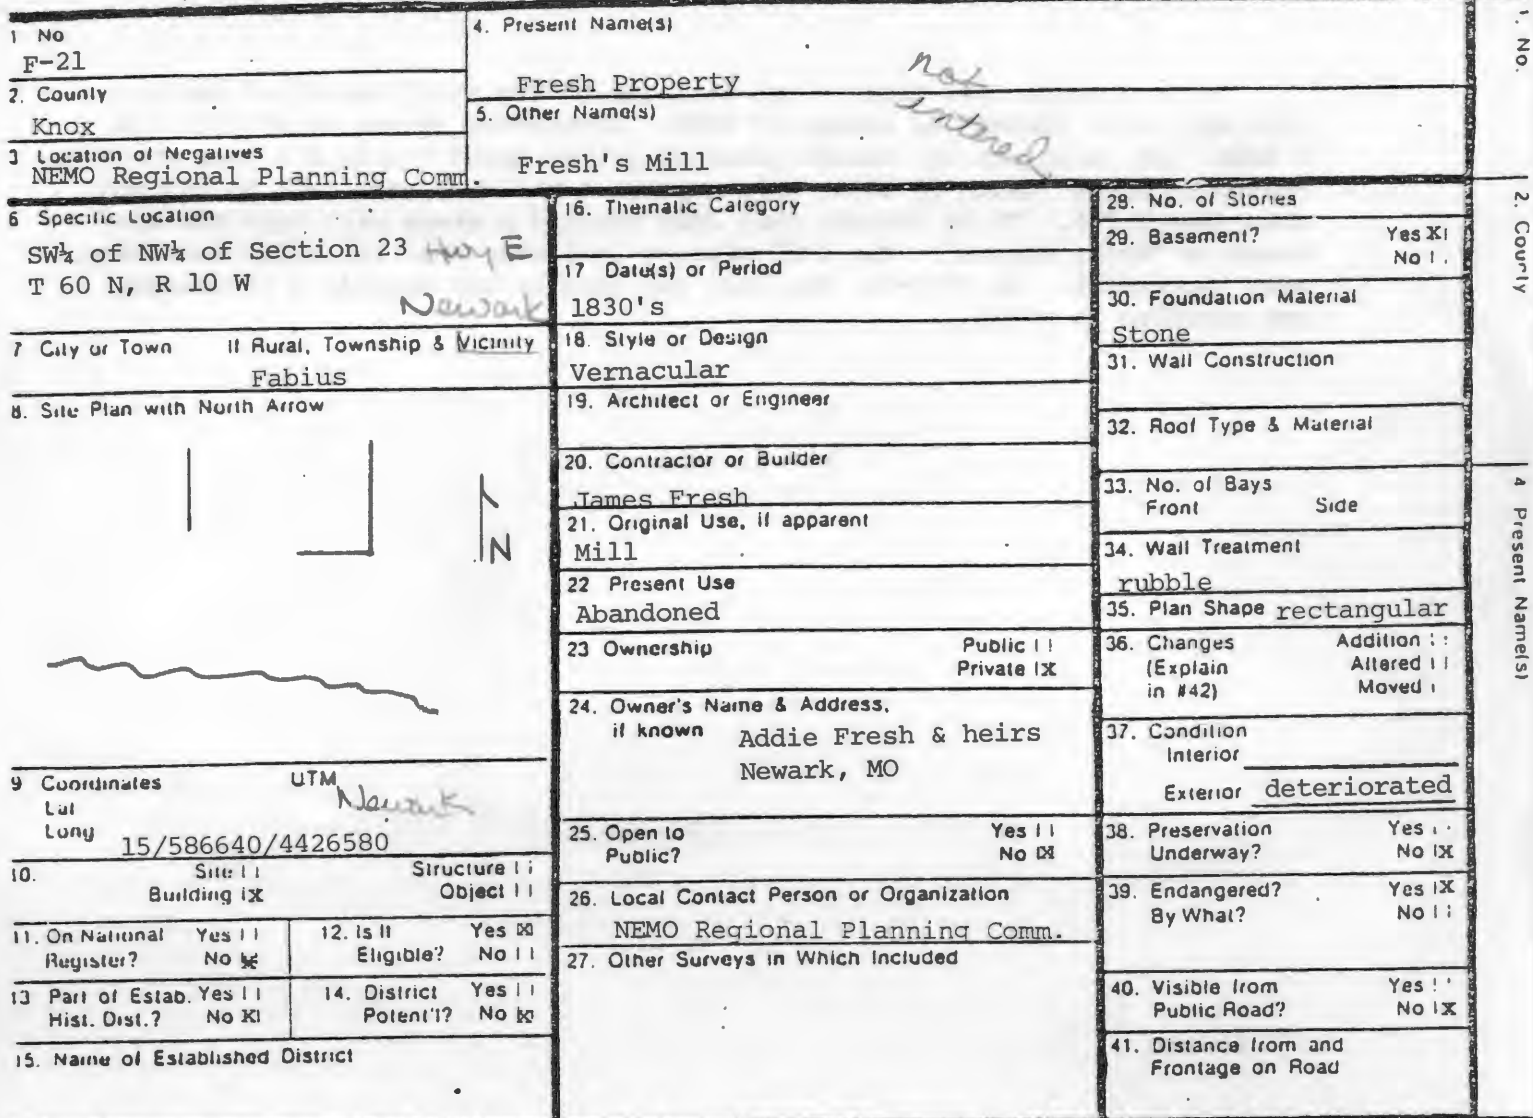 1 No
F-21
2. County
Knox
3 Location of Negatives
NEMO Regional Planning Comm.
4. Present Name(s)
Fresh Property
5. Other Name(s)
Fresh's Mill
not
entered
6 Specific Location
SW¼ of NW¼ of Section 23 Hwy E
T 60 N, R 10 W
Newark
7 City or Town If Rural, Township & Vicinity
Fabius
8. Site Plan with North Arrow
N
9 Coordinates UTM
Newark
Lat
Long
15/586640/4426580
10. Site Structure
Building X Object
11. On National Register? Yes No X
12. Is It Eligible? Yes X No
13 Part of Estab. Hist. Dist.? Yes No X
14. District Potent'l? Yes No X
15. Name of Established District
16. Thematic Category
17 Date(s) or Period
1830's
18. Style or Design
Vernacular
19. Architect or Engineer
20. Contractor or Builder
James Fresh
21. Original Use, if apparent
Mill
22 Present Use
Abandoned
23 Ownership Public
Private X
24. Owner's Name & Address,
if known Addie Fresh & heirs
Newark, MO
25. Open to Yes
Public? No X
26. Local Contact Person or Organization
NEMO Regional Planning Comm.
27. Other Surveys in Which Included
28. No. of Stories
29. Basement? Yes X
No
30. Foundation Material
Stone
31. Wall Construction
32. Roof Type & Material
33. No. of Bays
Front Side
34. Wall Treatment
rubble
35. Plan Shape rectangular
36. Changes Addition
(Explain Altered
in #42) Moved
37. Condition
Interior
Exterior deteriorated
38. Preservation Yes
Underway? No X
39. Endangered? Yes X
By What? No
40. Visible from Yes
Public Road? No X
41. Distance from and
Frontage on Road
1. No.
2. County
4 Present Name(s)